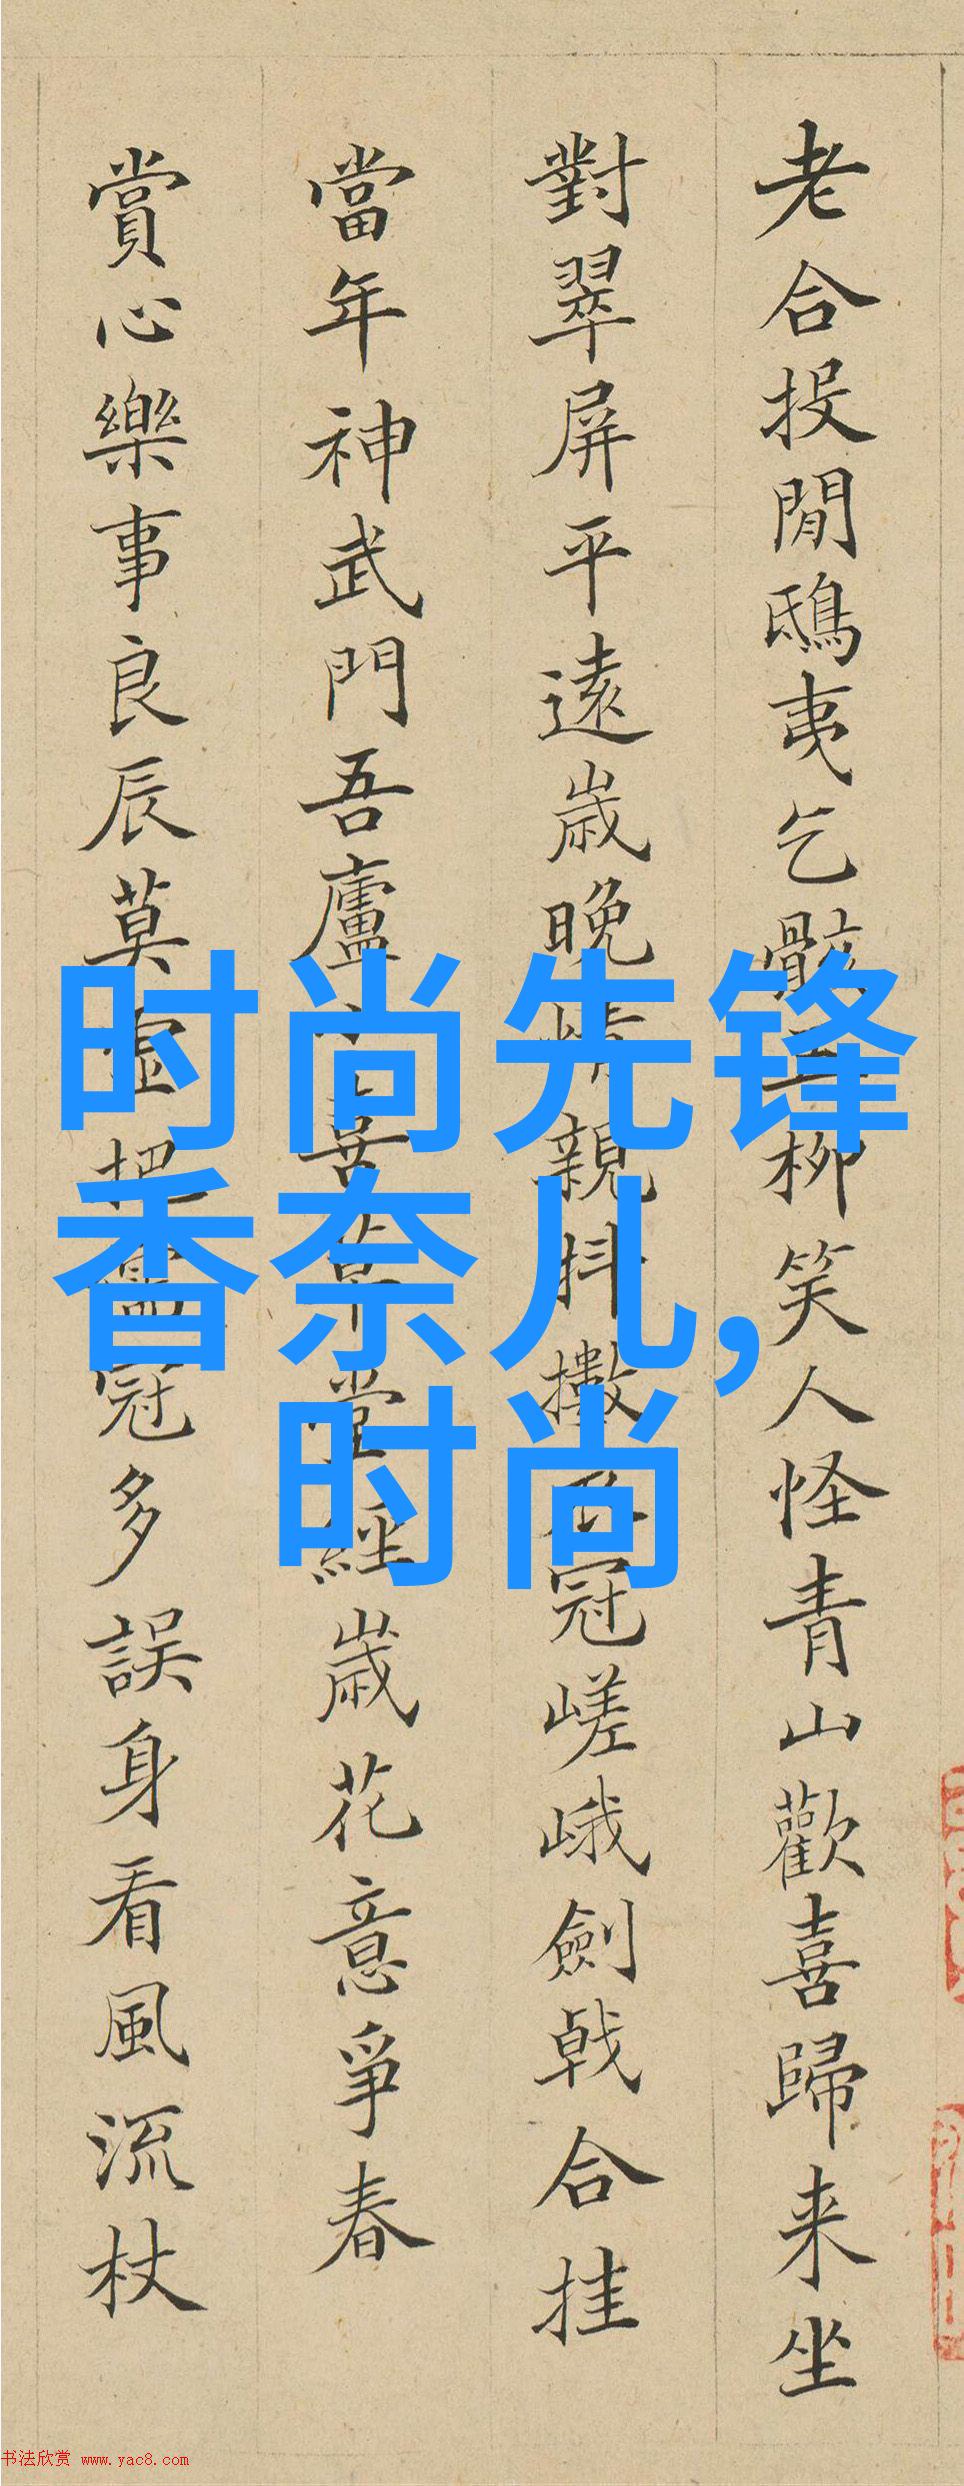 老合投閒鴟夷乞骸五柳笑人怪青山歡喜歸来坐
對翠屏平遠歲晚情親抖擻冠嵯峨劍戟合挂
當年神武門吾廬堂經歲花意爭春
賞心樂事良辰莫虛把儒冠多誤身看風流杖
时尚先锋
香奈儿,
时尚
书法欣赏 www.yac8.com